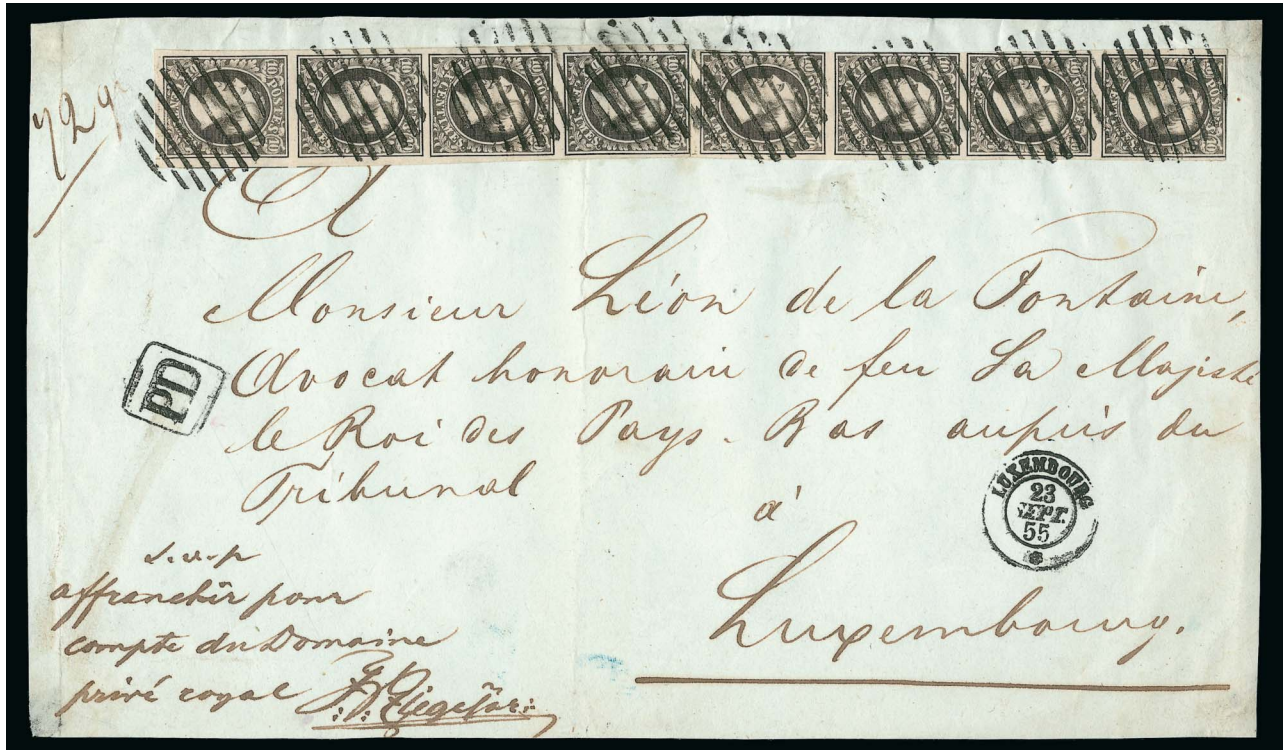 72 gr
A
Monsieur Léon de la Fontaine,
Avocat honoraire de feu Sa Majesté
le Roi des Pays-Bas auprès du
Tribunal
à
Luxembourg.
PD
LUXEMBOURG
23
SEPT.
55
s.v.p
affranchir pour
compte du Domaine
privé royal